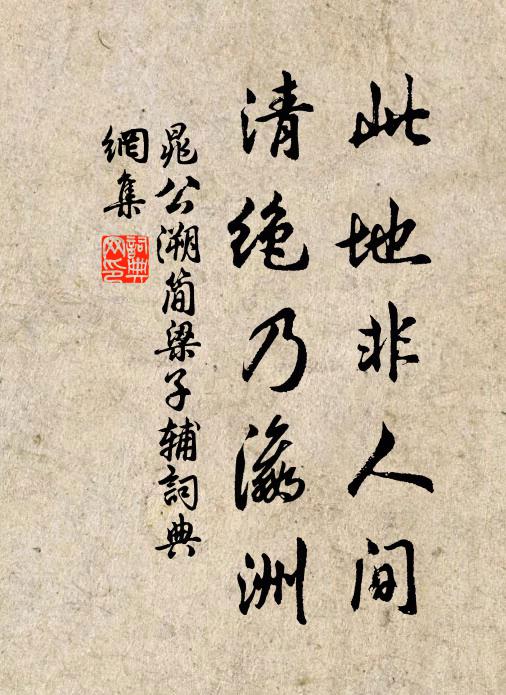 此地非人间
清绝乃瀛洲
晁公溯简梁子辅詞典
網集
詞典
网印